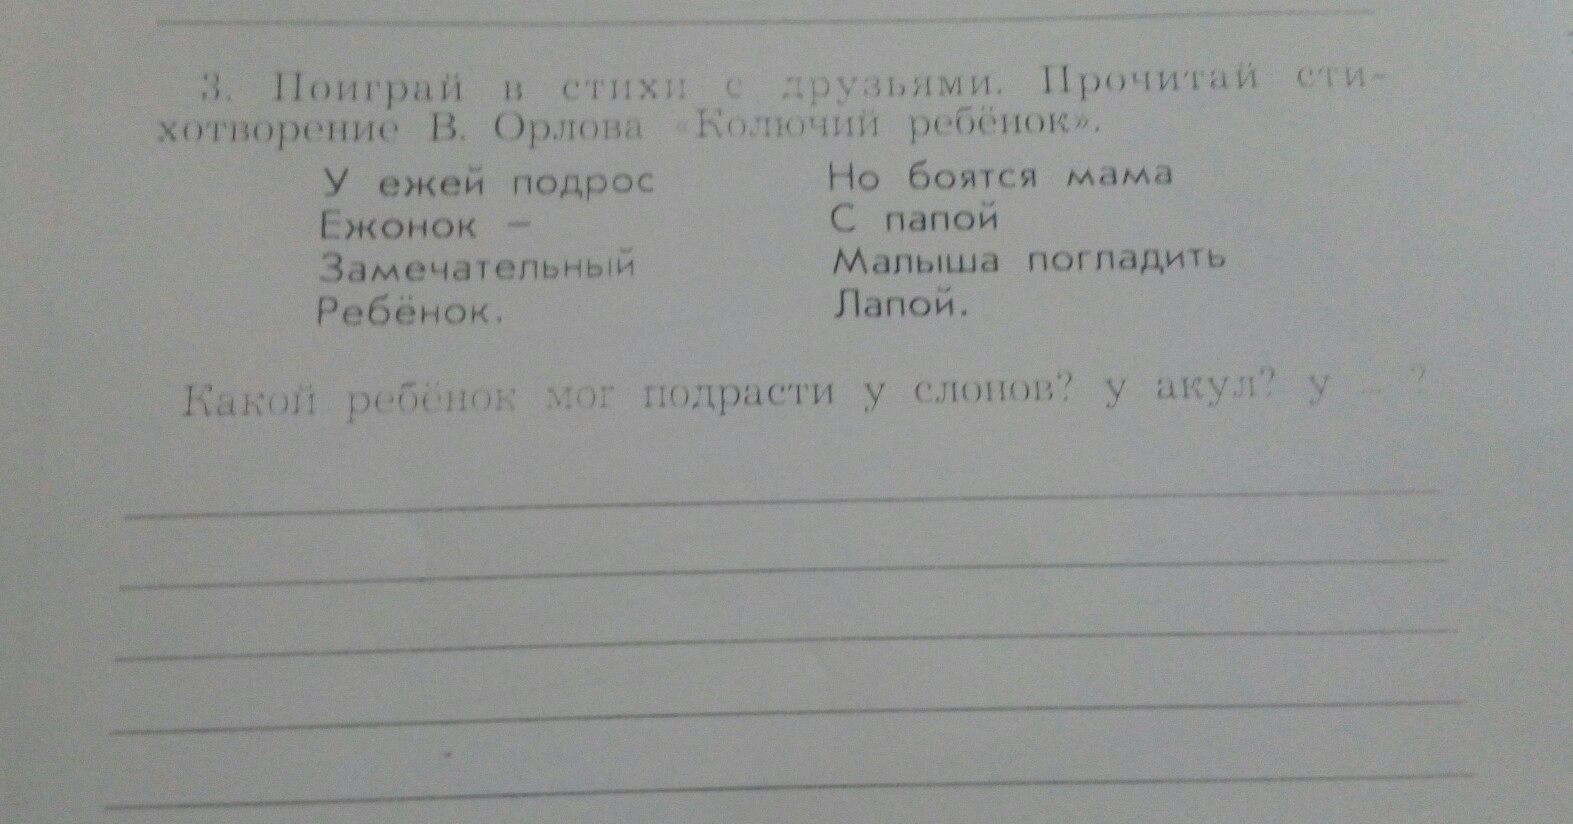 3. Поиграй в стихи с друзьями. Прочитай сти-
хотворение В. Орлова «Колючий ребёнок».
У ежей подрос
Ежонок –
Замечательный
Ребёнок.
Но боятся мама
С папой
Малыша погладить
Лапой.
Какой ребёнок мог подрасти у слонов? у акул? у ... ?